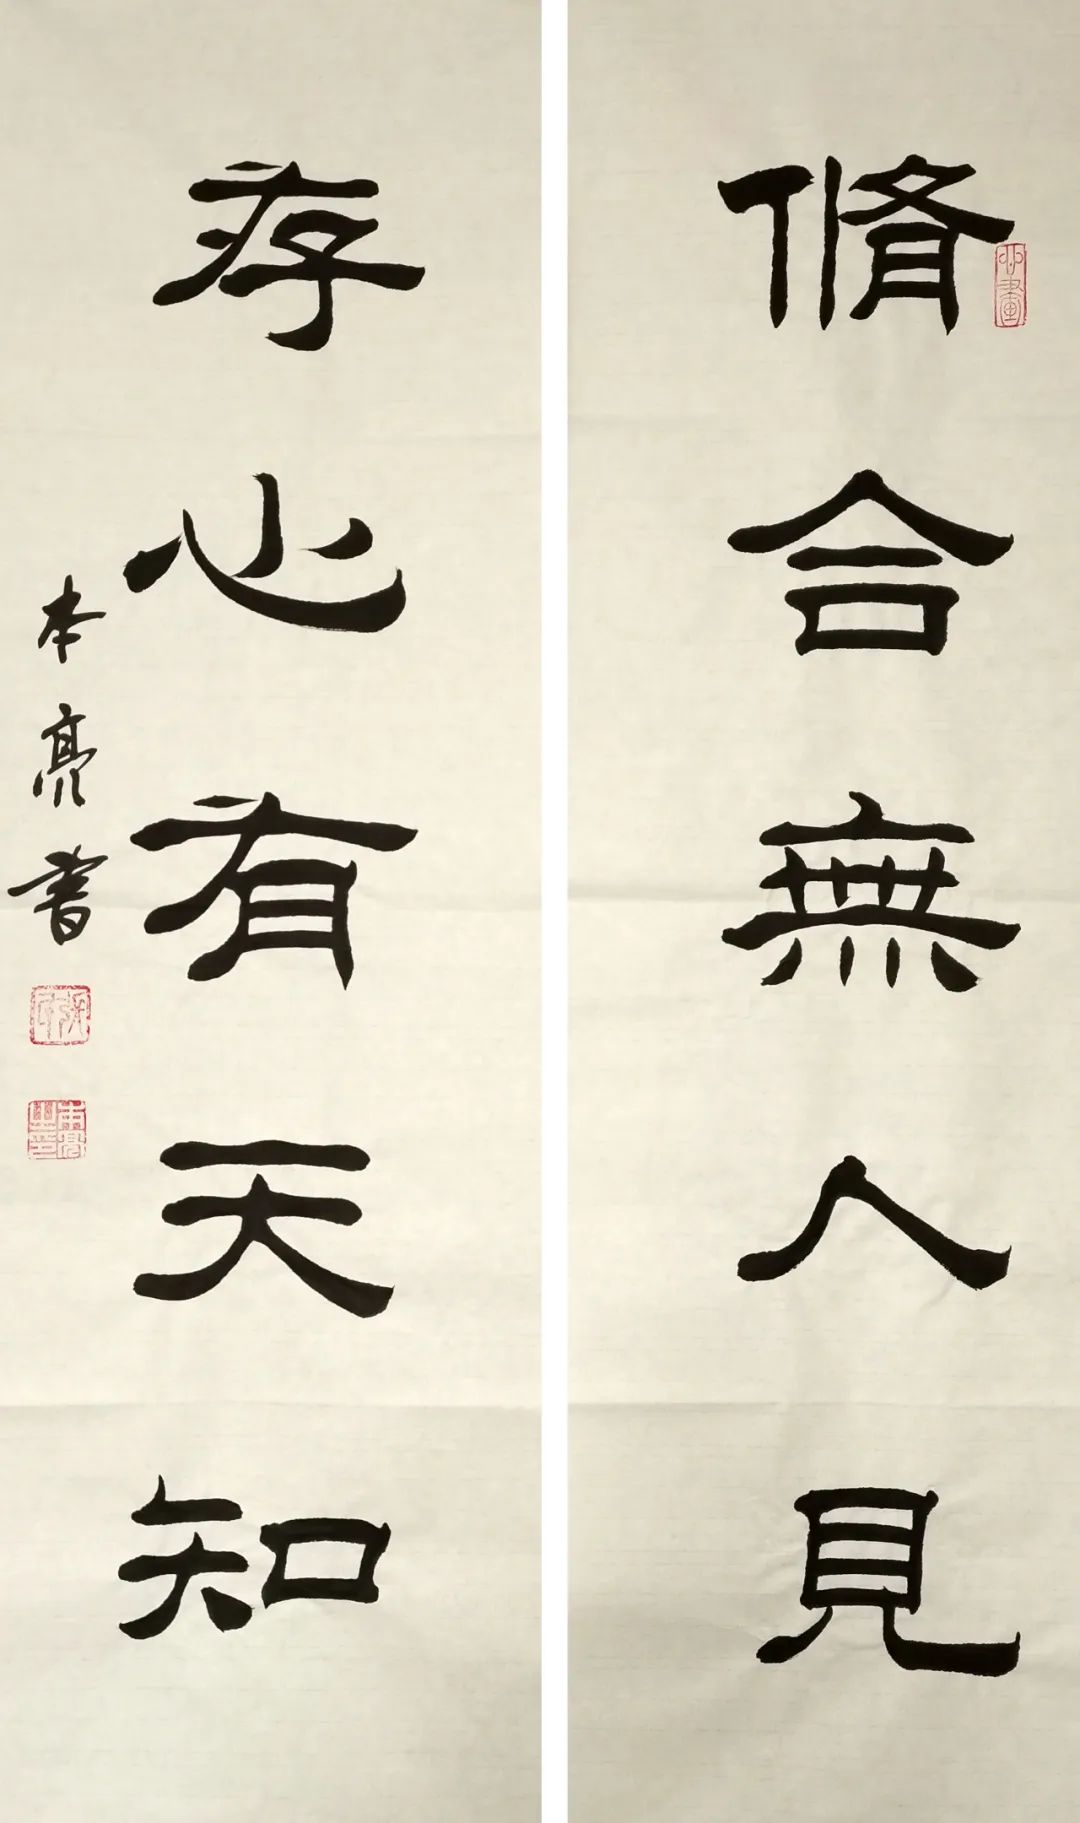 脩合無人見
存心有天知
本亮書